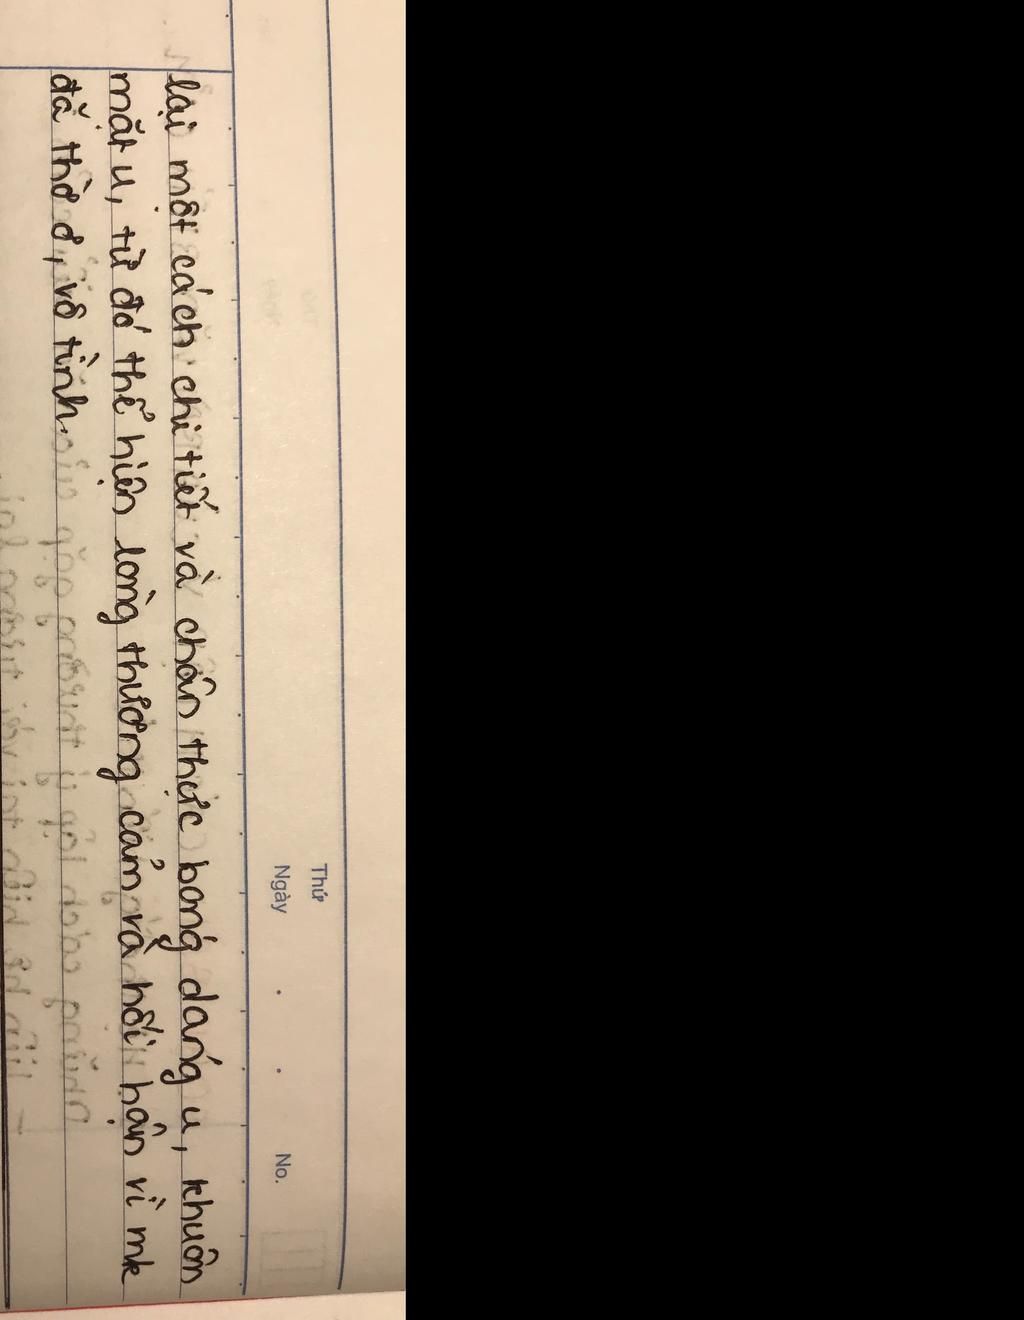 Thứ
Ngày . . No.
lại một cách chi tiết và chân thực bóng dáng u, khuôn
mặt u, từ đó thể hiện lòng thương cảm và hối hận vì mk
đã thờ ơ, vô tình.